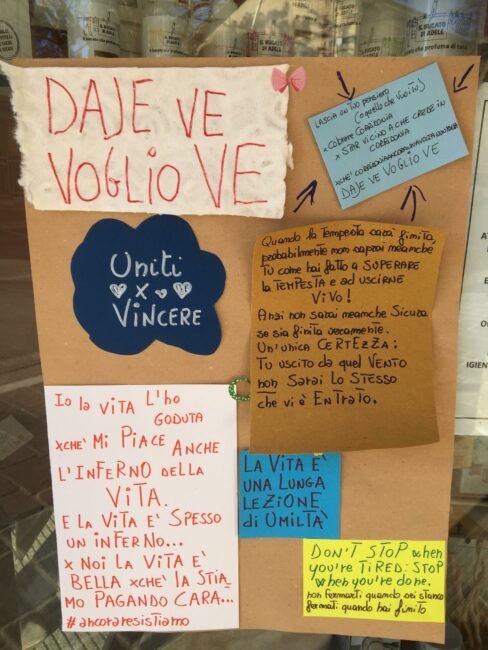 IL BUCATO
DI ADELE
IL BUCATO
DI ADELE
IL BUCATO
DI ADELE
IL BUCATO
DI ADELE
che profuma di
DAJE VE
VOGLIO VE
LASCIA UN TUO PENSIERO
(o quello che vuoi tu)
x
CORRIDONIA
x STAR VICINO A CHE CREDE IN
CORRIDONIA
XCHÈ
DAJE VE VOGLIO VE
Uniti
x
VINCERE
Quando la TEMPESTA sarà finita,
probabilmente non saprai neanche
TU come hai fatto a SUPERARE
la TEMPESTA e ad USCIRNE
VIVO!
Anzi non sarai neamche Sicura
se sia finita veramente.
Un'unica CERTEZZA:
TU uscito da quel VENTO
non Sarai LO STESSO
che vi è ENTRATO.
Io la VITA L'ho
GODUTA
XCHE' MI PIACE ANCHE
L'INFERNO DELLA
VITA.
E LA VITA E' SPESSO
UN INFERNO...
x NOI LA VITA E'
BELLA XCHE' LA STIA_
MO PAGANDO CARA...
#ancoraresistiamo
LA VITA E'
UNA LUNGA
LEZIONE
di UMILTÀ
DON'T STOP when
you're TIRED: STOP
when you're done.
non fermarti quando sei stanco
fermati quando hai finito
IGIEN